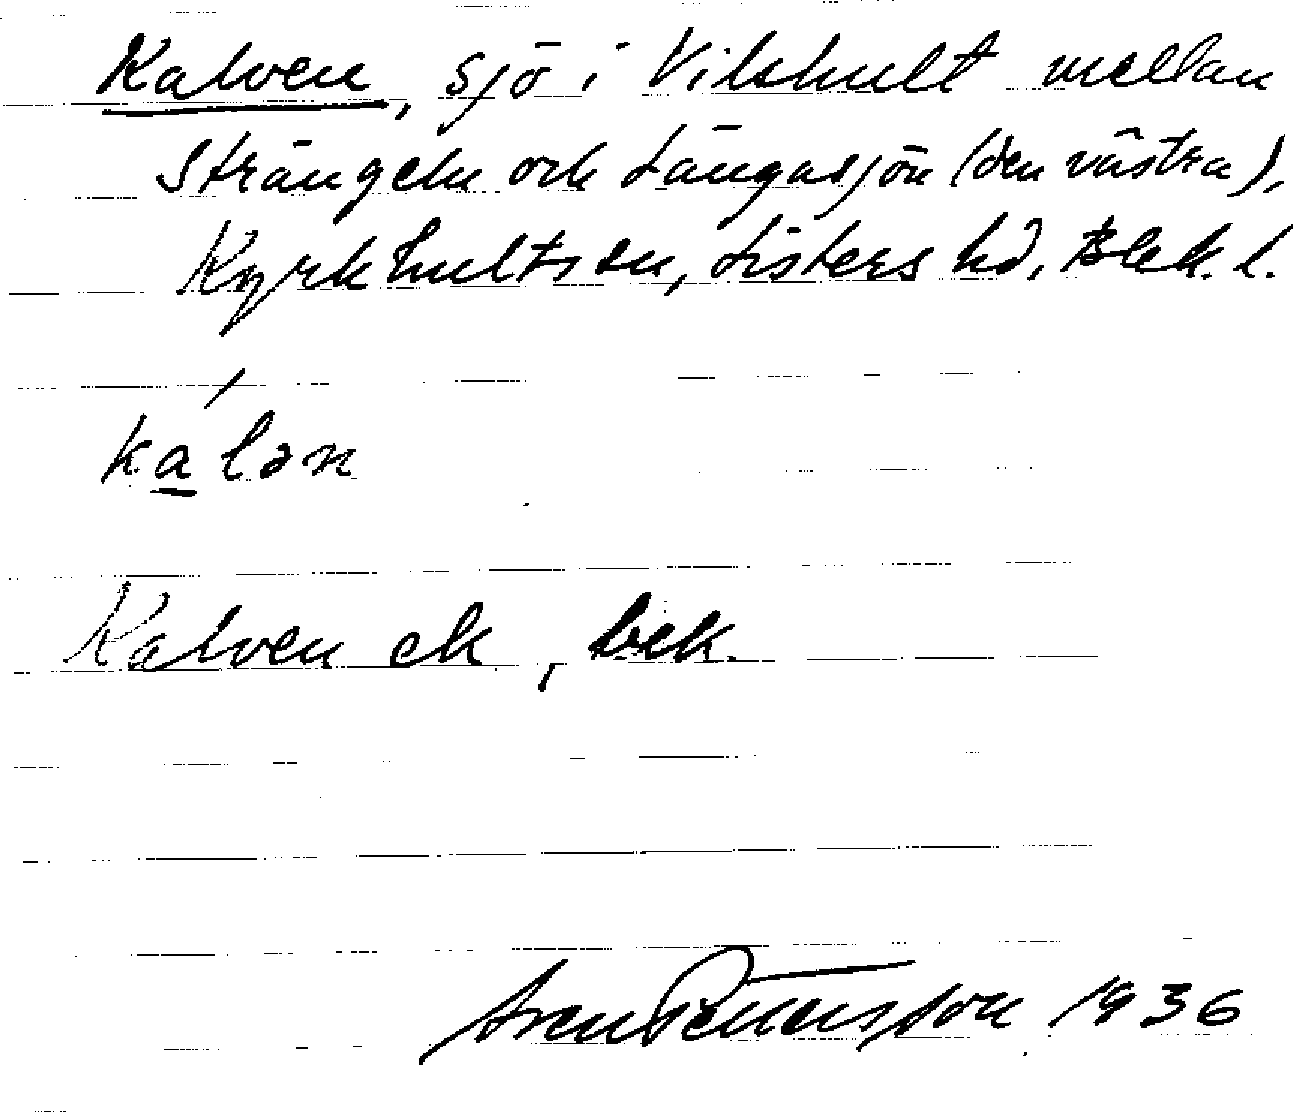 Kalven, sjö i Vilshult mellan
Strängeln och Långasjön (den västra),
Kyrkhults sn, Listers hd, Blek. l.
kalən
Kalven ek, bek.
Sven Pettersson 1936